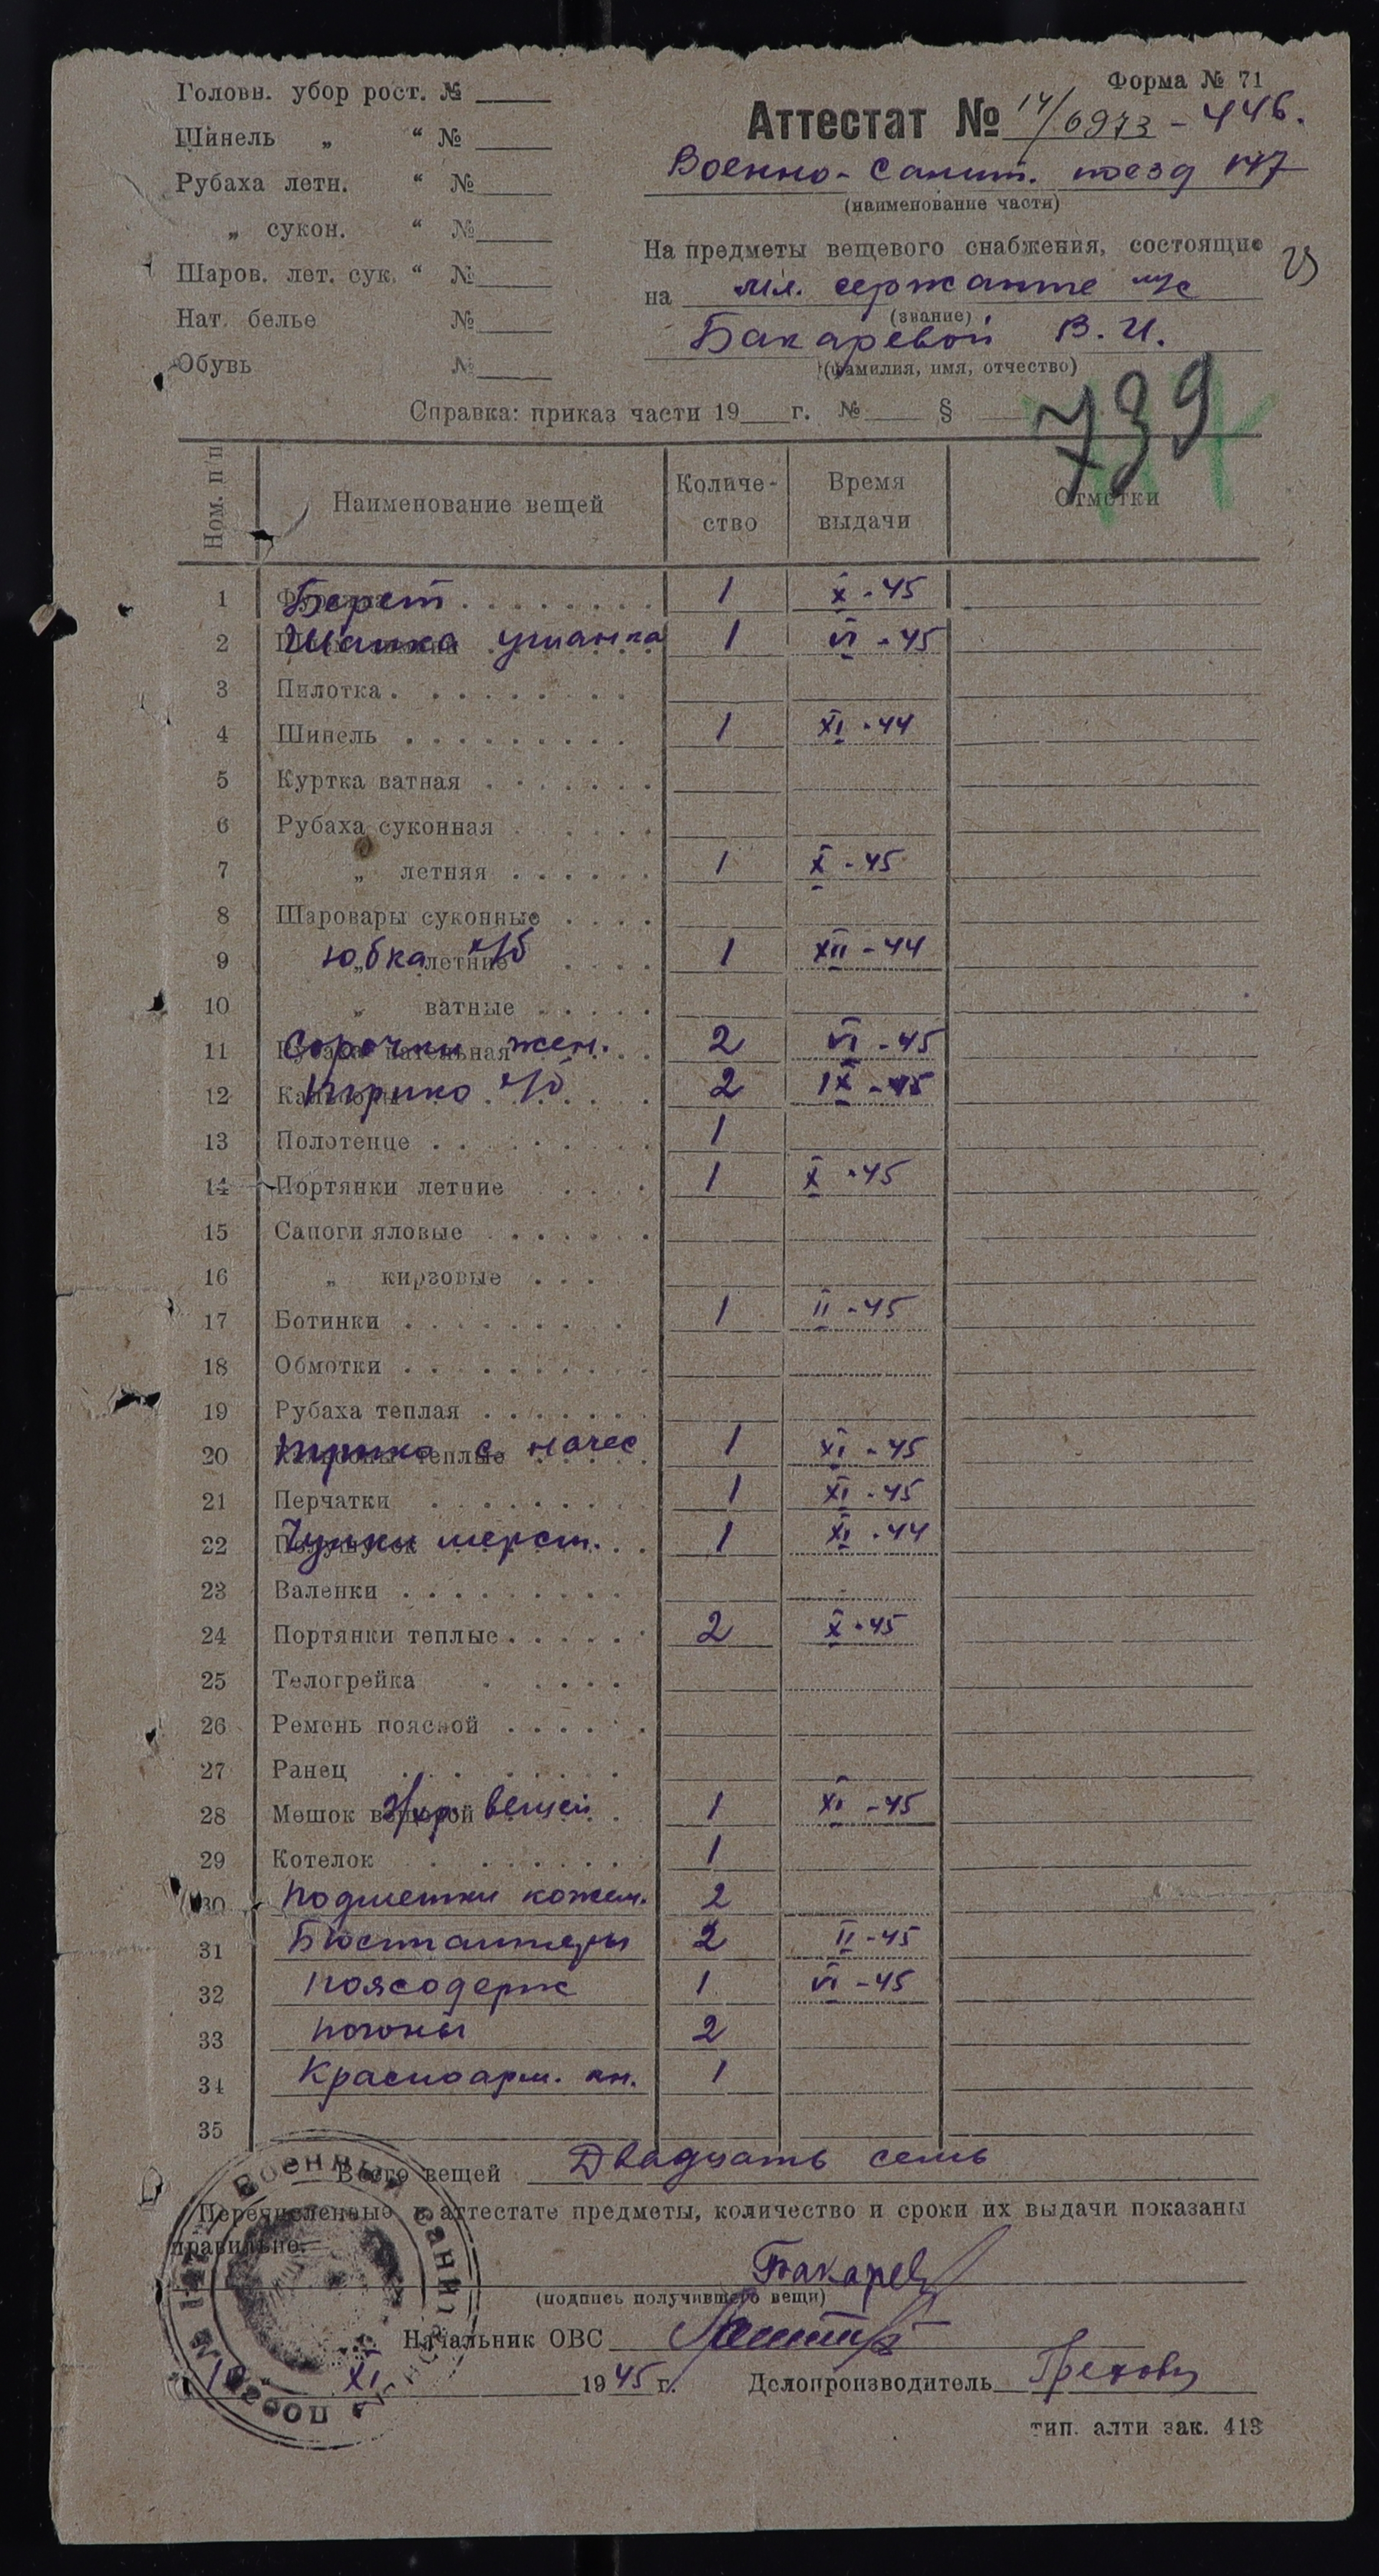 Форма № 71
Головн. убор рост. №
Шинель „ “ №
Рубаха летн. “ №
„ сукон. “ №
Шаров. лет. сук. “ №
Нат. белье №
Обувь №
Аттестат № 14/6973-446.
Военно-Санит. поезд 147
(наименование части)
На предметы вещевого снабжения, состоящие
на мл. сержанте м/с
(звание)
Бакаревой В. И.
(фамилия, имя, отчество)
739
Справка: приказ части 19 г. № §
Ном. п/п Наименование вещей Количество Время выдачи Отметки
1 Берет 1 X-45
2 Шапка ушанка 1 VI-45
3 Пилотка
4 Шинель 1 XI-44
5 Куртка ватная
6 Рубаха суконная
7 „ летняя 1 X-45
8 Шаровары суконные
9 Юбка х/б летние 1 XII-44
10 „ ватные
11 Сорочки жен. 2 VI-45
12 Трико х/б 2 IX-45
13 Полотенце 1
14 Портянки летние 1 X-45
15 Сапоги яловые
16 „ кирзовые
17 Ботинки 1 II-45
18 Обмотки
19 Рубаха теплая
20 Трико с начес 1 XI-45
21 Перчатки 1 XI-45
22 Чулки шерст. 1 XI-44
23 Валенки
24 Портянки теплые 2 X-45
25 Телогрейка
26 Ремень поясной
27 Ранец
28 Мешок д/хр. вещей 1 XI-45
29 Котелок 1
30 Подметки кожан. 2
31 Бюстгалтеры 2 II-45
32 Поясодерж 1 VI-45
33 Погоны 2
34 Красноарм. кн. 1
35
Всего вещей Двадцать семь
Перечисленные в аттестате предметы, количество и сроки их выдачи показаны
правильно.
Бакарев
(подпись получившего вещи)
Начальник ОВС
XI 1945 г. Делопроизводитель Грехова
тип. алти зак. 413